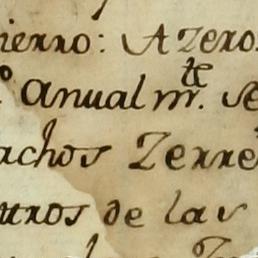 ierro: Azero
º anual mr.te se
achos Zerre
uros de las